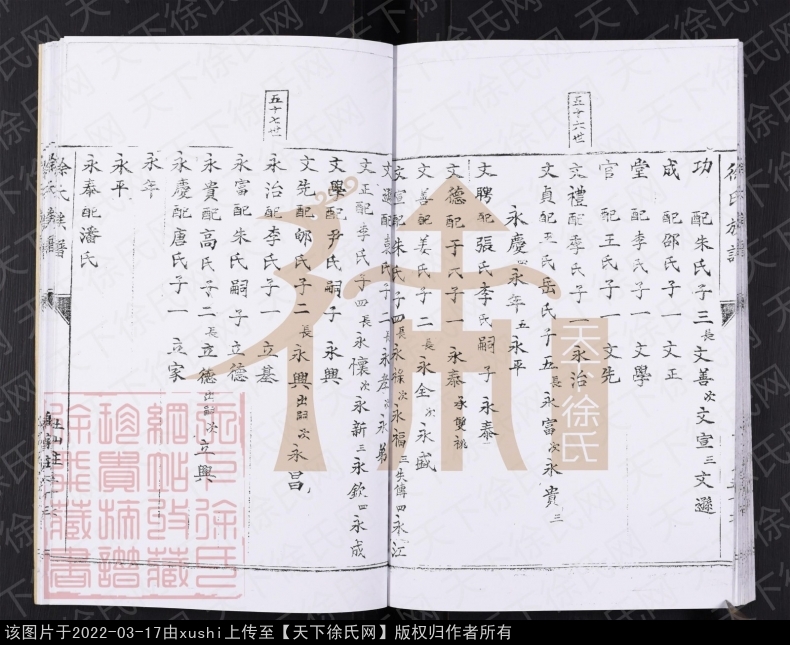 徐氏族譜
功 配朱氏子三長文善次文宣三文遜
成 配邵氏子一 文正
堂 配李氏子一 文學
官 配王氏子一 文先
五十六世
文禮配李氏子一永治
文貞配王氏岳氏子五長永富次永貴三
永慶四永年五永平
文聘配張氏李氏嗣子永泰
文德配于氏子一 永泰承雙祧
文善配姜氏子二長永全次永盛
文宣配朱氏子四長永祿次永福三失傳四永江
文遜配袁氏子二長永
文正配李氏子四長永懷次永新三永欽四永成
文學配尹氏嗣子 永興
文先配邮氏子二長永興出嗣次永昌
五十七世
永治配李氏子一 立基
永富配朱氏嗣子立德
永貴配高氏子二長立德出嗣次立興
永慶配唐氏子一 立家
永年
永平
永泰配潘氏
徐氏族譜
天下徐氏
天下徐氏网
该图片于2022-03-17由xushi上传至【天下徐氏网】版权归作者所有